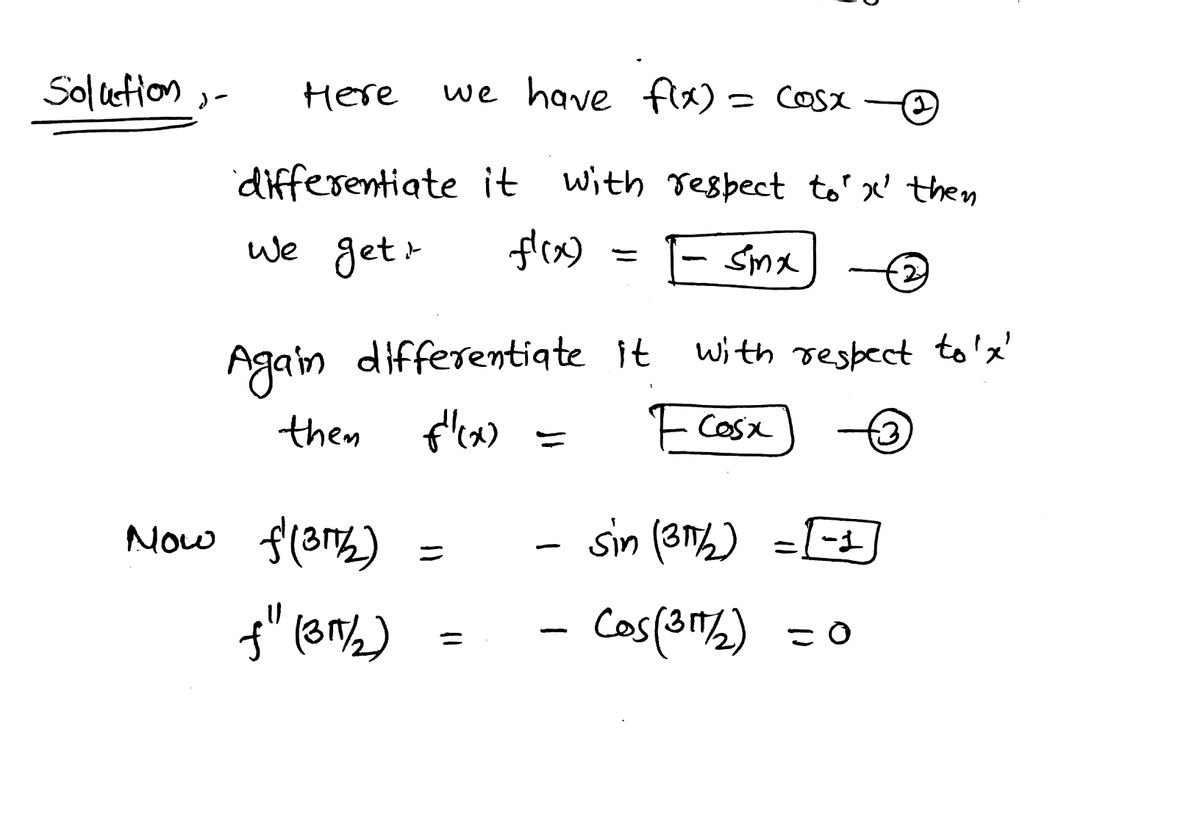 Solution :- Here we have f(x) = cosx —①
differentiate it with respect to 'x' then
we get :- f'(x) = - sinx —②
Again differentiate it with respect to 'x'
then f''(x) = - cosx —③
Now f'(3π/2) = - sin (3π/2) = -1
f'' (3π/2) = - Cos(3π/2) = 0